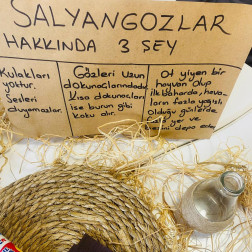 SALYANGOZLAR
HAKKINDA 3 ŞEY
Kulakları
yoktur.
Sesleri
duyamazlar.
Gözleri uzun
dokunaçlarındadır.
Kısa dokunaçları
ise burun gibi
koku alır.
Ot yiyen bir
hayvan olup
ilkbaharda, hava-
ların fazla yağışlı
olduğu günlerde
fazla yer ve
besini depo eder.